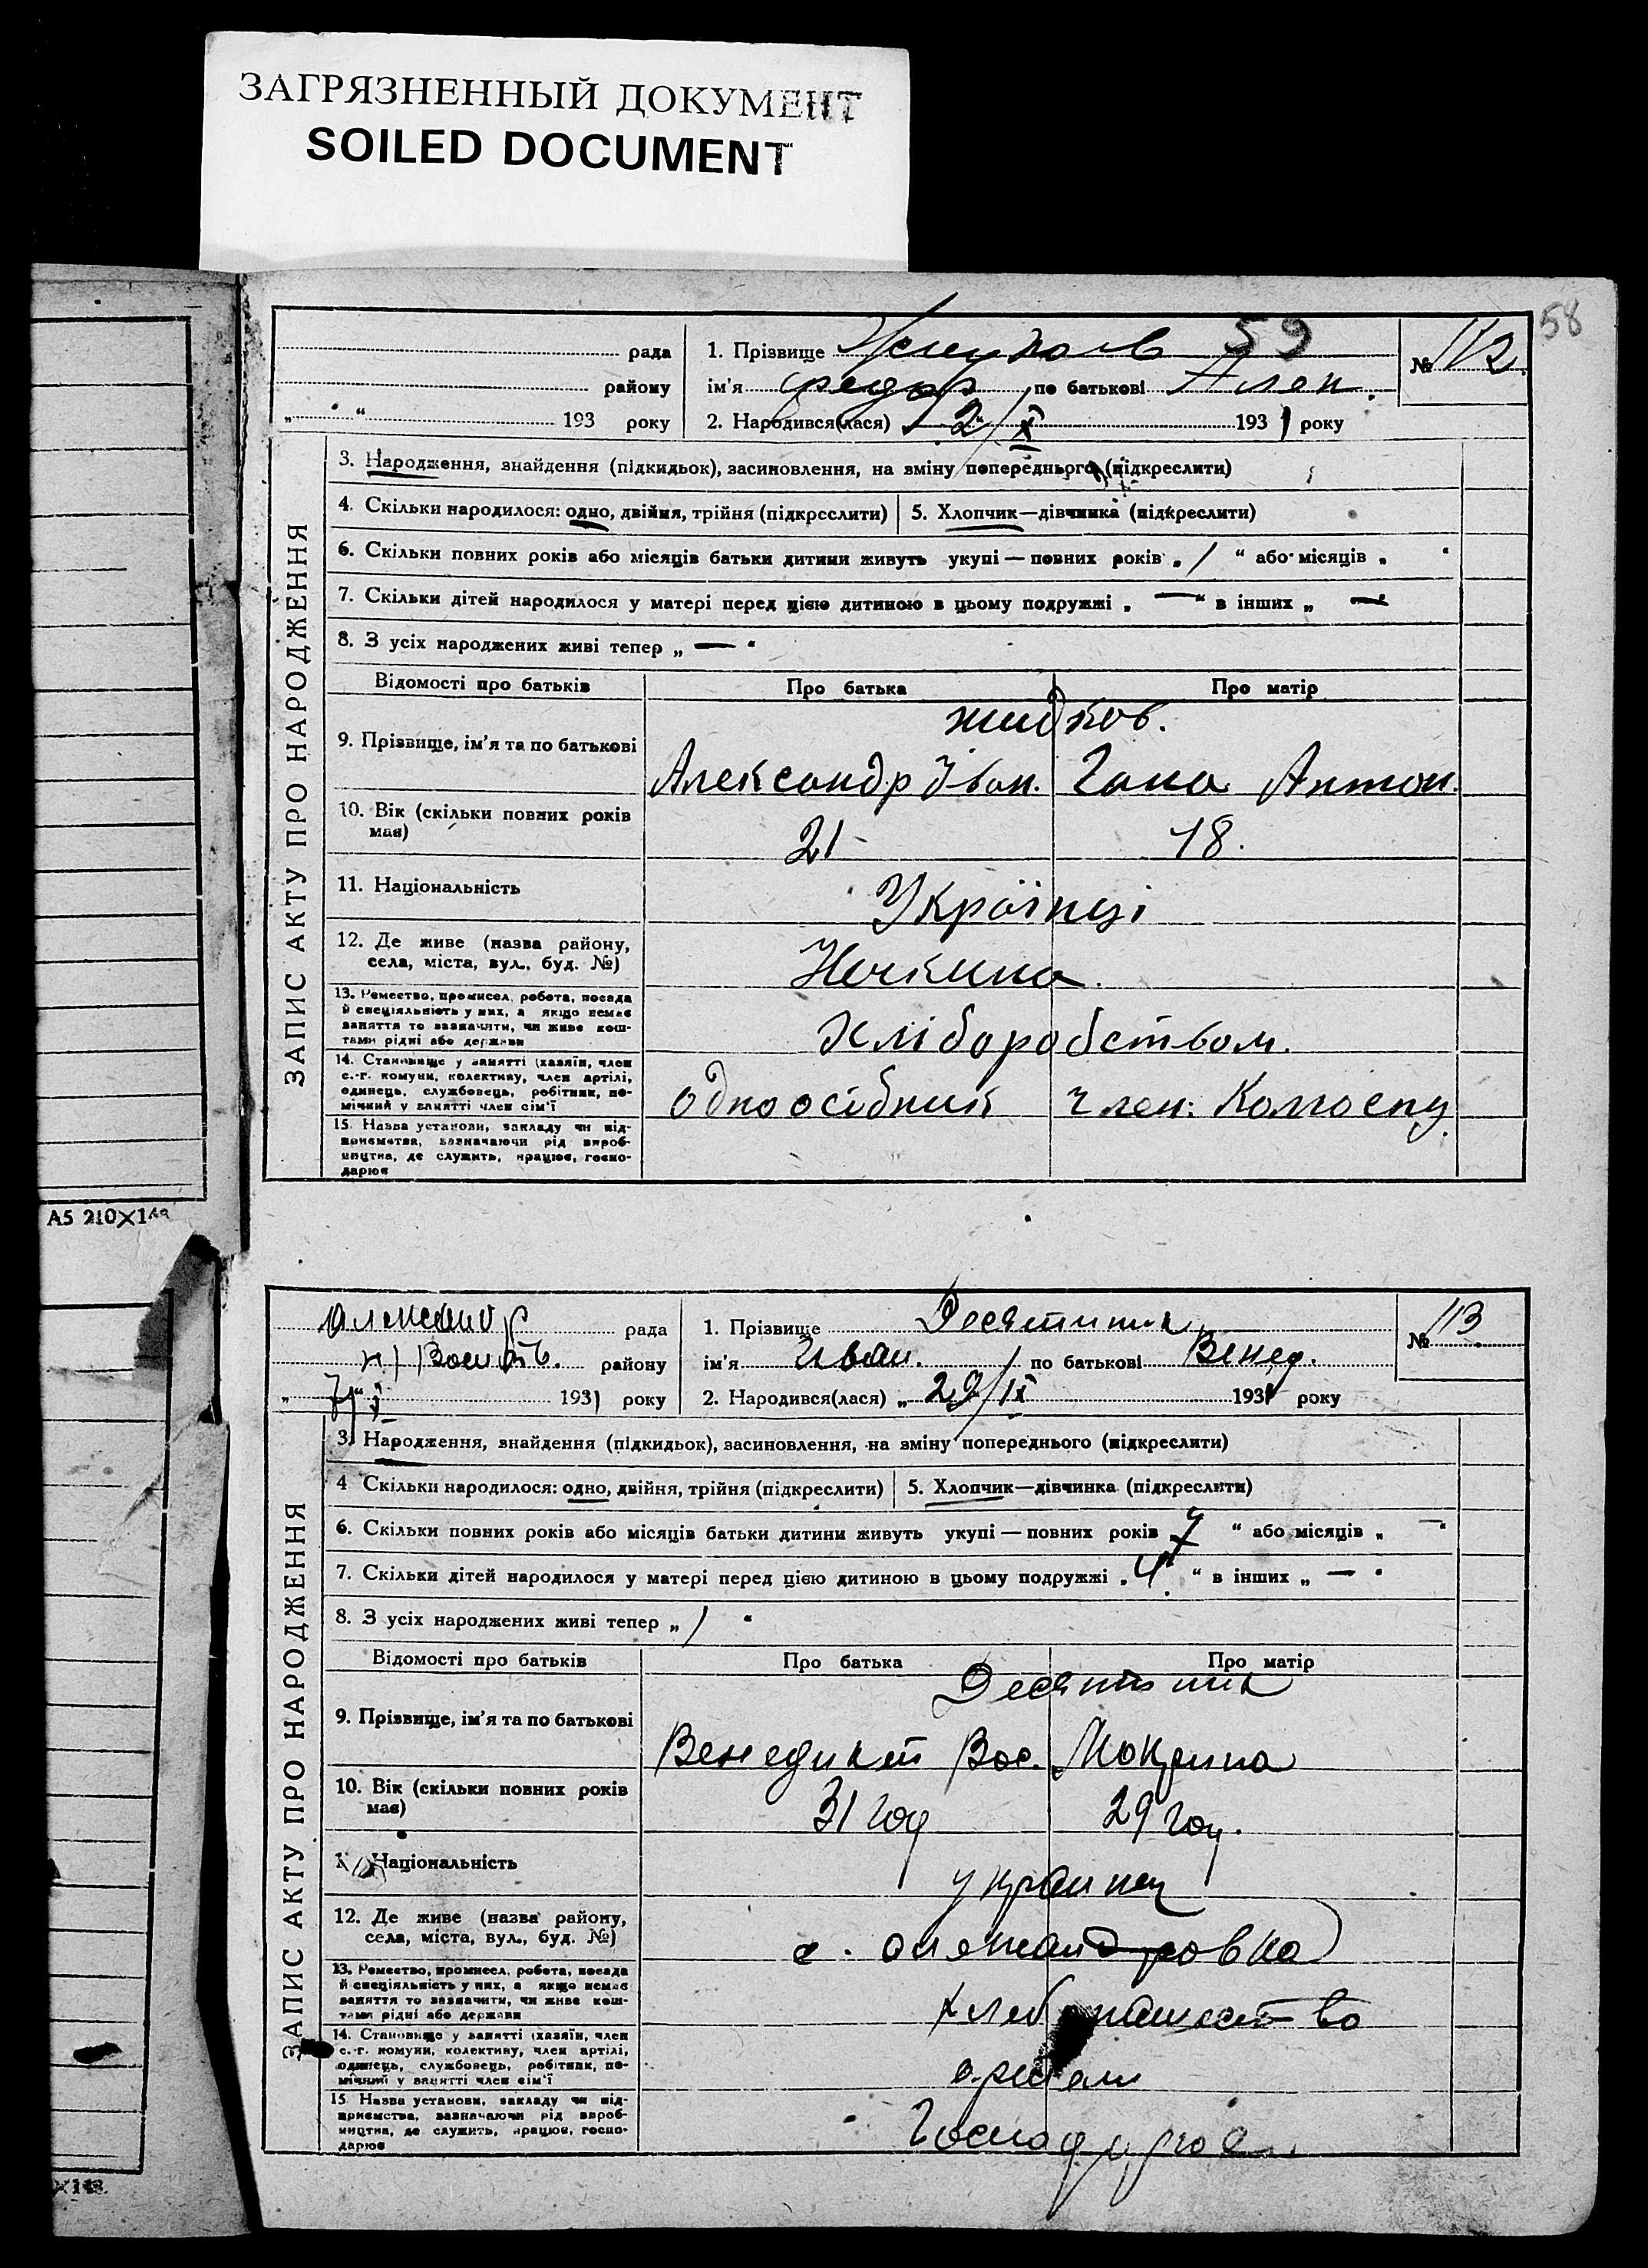 ЗАГРЯЗНЕННЫЙ ДОКУМЕНТ
SOILED DOCUMENT
58
59
рада
1. Прізвище
№ 112
району
ім'я Федор по батькові Алек.
„ “ 193 року
2. Народився(лася) 2/X 1931 року
ЗАПИС АКТУ ПРО НАРОДЖЕННЯ
3. Народження, знайдення (підкидьок), засиновлення, на зміну попереднього (підкреслити)
4. Скільки народилося: одно, двійня, трійня (підкреслити) 5. Хлопчик—дівчинка (підкреслити)
6. Скільки повних років або місяців батьки дитини живуть укупі — повних років „ 1 “ або місяців „ “
7. Скільки дітей народилося у матері перед цією дитиною в цьому подружжі „ — “ в інших „ —
8. З усіх народжених живі тепер „ — “
Відомості про батьків Про батька Про матір
Жидков.
9. Прізвище, ім'я та по батькові
Александр Іван. Гана Антон.
10. Вік (скільки повних років має)
21 18.
11. Національність
Українці
12. Де живе (назва району, села, міста, вул., буд. №)
13. Ремество, промисел, робота, посада й спеціяльність у них, а якщо немає заняття то зазначити, чи живе коштами рідні або держави
Хліборобством.
14. Становище у занятті (хазяїн, член с.-г. комуни, колективу, член артілі, одинець, службовець, робітник, помічний у занятті член сім'ї
Одноосібник член: Колгоспу
15. Назва установи, закладу чи підприємства, зазначаючи рід виробництва, де служить, працює, господарює
А5 210×148
Александр рада
1. Прізвище Десятник
№ 113
району
ім'я Иван. по батькові Венед.
1931 року
2. Народився(лася) „ 29/IX 1931 року
ЗАПИС АКТУ ПРО НАРОДЖЕННЯ
3. Народження, знайдення (підкидьок), засиновлення, на зміну попереднього (підкреслити)
4 Скільки народилося: одно, двійня, трійня (підкреслити) 5. Хлопчик—дівчинка (підкреслити)
6. Скільки повних років або місяців батьки дитини живуть укупі — повних років 7 “ або місяців „ — “
7. Скільки дітей народилося у матері перед цією дитиною в цьому подружжі „ 4 “ в інших „ — “
8. З усіх народжених живі тепер „ 1 “
Відомості про батьків Про батька Про матір
Десятник
9. Прізвище, ім'я та по батькові
Венедикт Вас. Мокрина
10. Вік (скільки повних років має)
31 год 29 год.
Національність
украинец
12. Де живе (назва району, села, міста, вул., буд. №)
с. Олександровка
13. Ремество, промисел, робота, посада й спеціяльність у них, а якщо немає заняття то зазначити, чи живе коштами рідні або держави
14. Становище у занятті (хазяїн, член с.-г. комуни, колективу, член артілі, одинець, службовець, робітник, помічний у занятті член сім'ї
15 Назва установи, закладу чи підприємства, зазначаючи рід виробництва, де служить, працює, господарює
×148